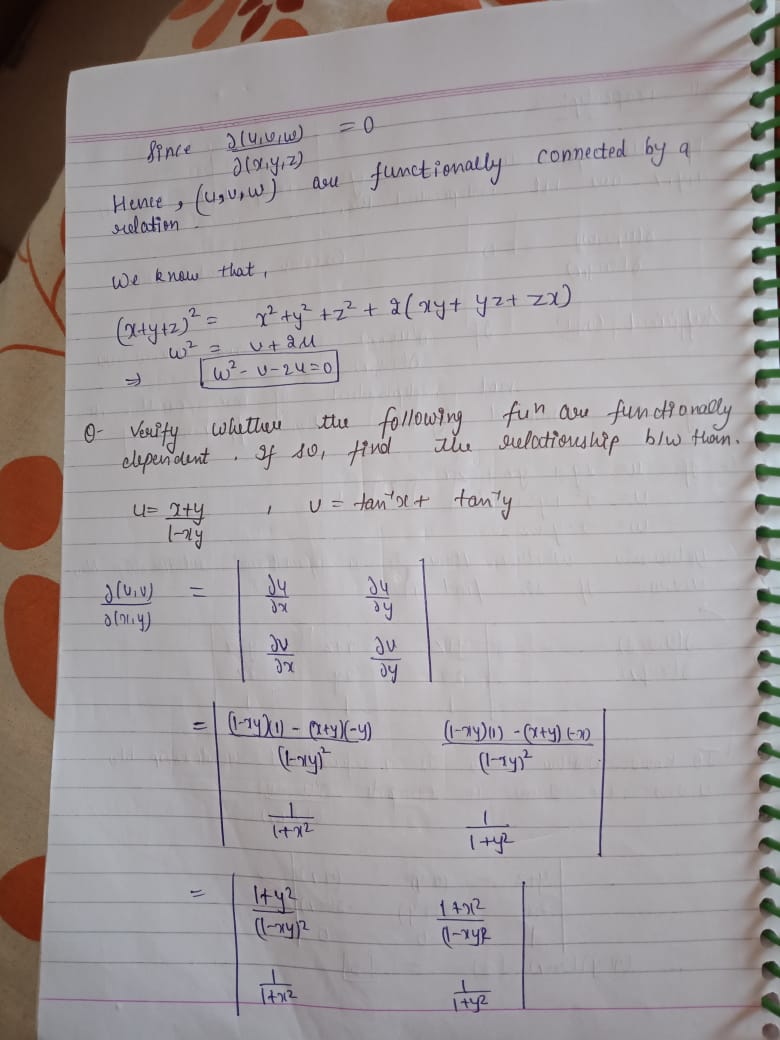 Since ∂(u,v,w)/∂(x,y,z) = 0
Hence, (u,v,w) are functionally connected by a
relation.
We know that,
(x+y+z)² = x²+y²+z² + 2(xy+yz+zx)
w² = v+2u
⇒ w²-v-2u=0
Q- Verify whether the following fun are functionally
dependent. If so, find the relationship b/w than.
u= x+y/1-xy , v = tan⁻¹x + tan⁻¹y
∂(u,v)/∂(x,y) = | ∂u/∂x ∂u/∂y |
| ∂v/∂x ∂v/∂y |
= | (1-xy)(1) - (x+y)(-y)/(1-xy)² (1-xy)(1) - (x+y)(-x)/(1-xy)² |
| 1/1+x² 1/1+y² |
= | 1+y²/(1-xy)² 1+x²/(1-xy)² |
| 1/1+x² 1/1+y² |